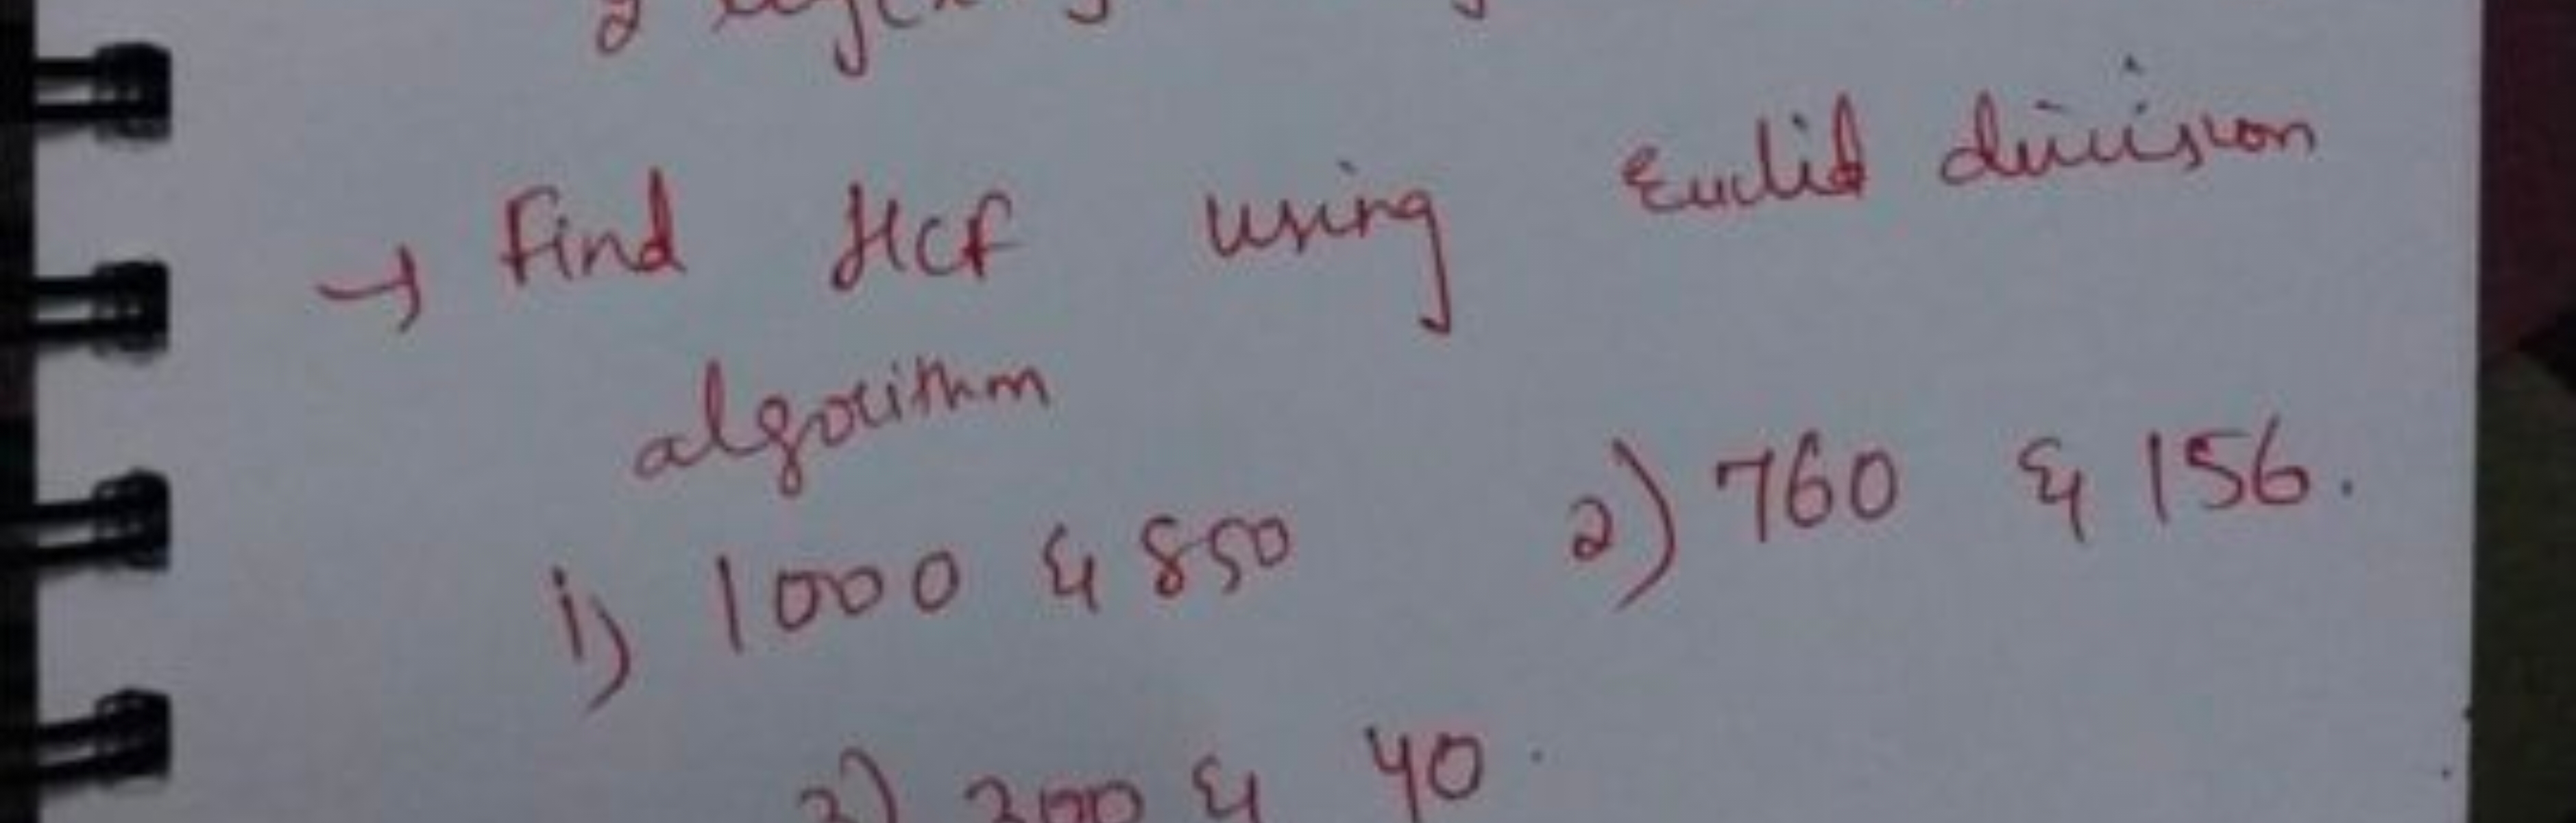 → Find HCF using Euclid division
algorithm
1) 1000 & 850 2) 760 & 156.
& 40.